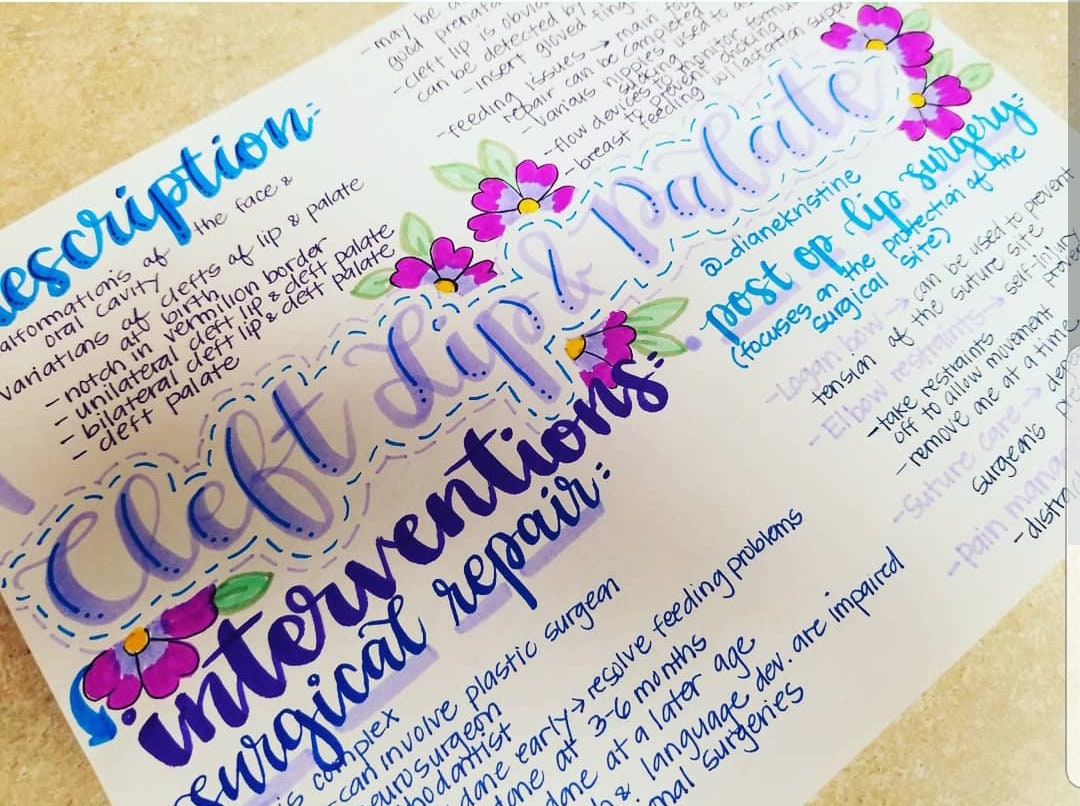 Cleft Lip & Palate
@_dianekristine
description:
malformations of the face &
oral cavity
variations of clefts of lip & palate
at birth
- notch in vermillion border
- unilateral cleft lip & cleft palate
- bilateral cleft lip & cleft palate
- cleft palate
- may be
good prenatal
- cleft lip is
can be detected by
- insert gloved
- feeding issues → main
repair can be completed
- various nipples used to
- flow devices to monitor formula
to prevent choking
- breast feeding w/ lactation support
interventions:
surgical repair:
is complex
- can involve plastic surgeon
neurosurgeon
done early → resolve feeding problems
done at 3-6 months
done at a later age
& language dev. are impaired
surgeries
post op lip surgery:
(focuses on the protection of the
surgical site)
- Logan bow → can be used to prevent
tension of the suture site
- Elbow restraints → self-injury
- take restraints
off to allow movement
- remove one at a time
- suture care →
surgeon's
- pain